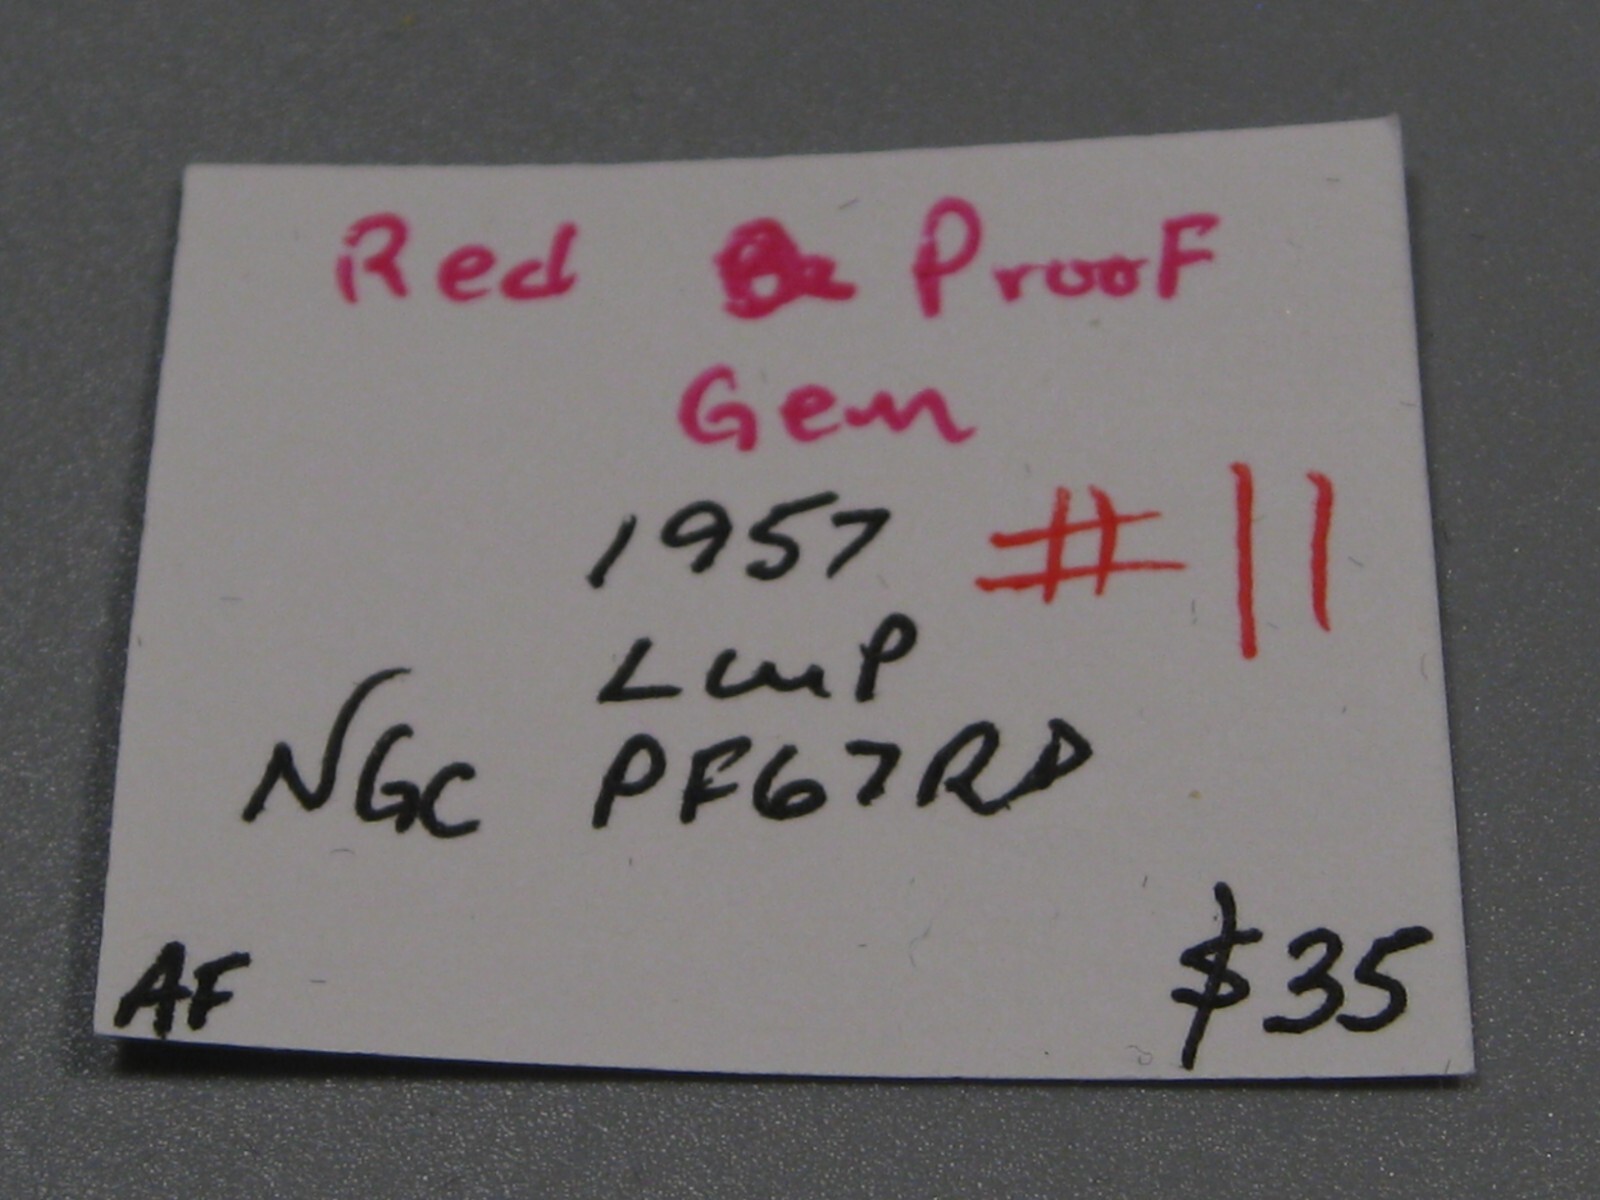 Red Proof
Gem
1957 #11
LWP
NGC PF67RD
AF $35